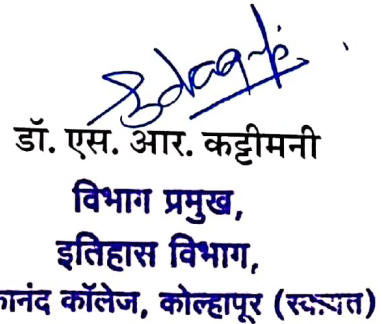 डॉ. एस. आर. कट्टीमनी
विभाग प्रमुख,
इतिहास विभाग,
कानंद कॉलेज, कोल्हापूर (स्वायत्त)